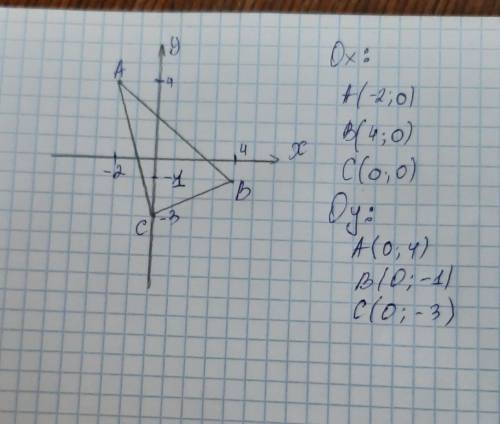 y
A
4
4
x
-2
-1
B
C
-3
Ox:
A(-2;0)
B(4;0)
C(0;0)
Oy:
A(0;4)
B(0;-1)
C(0;-3)